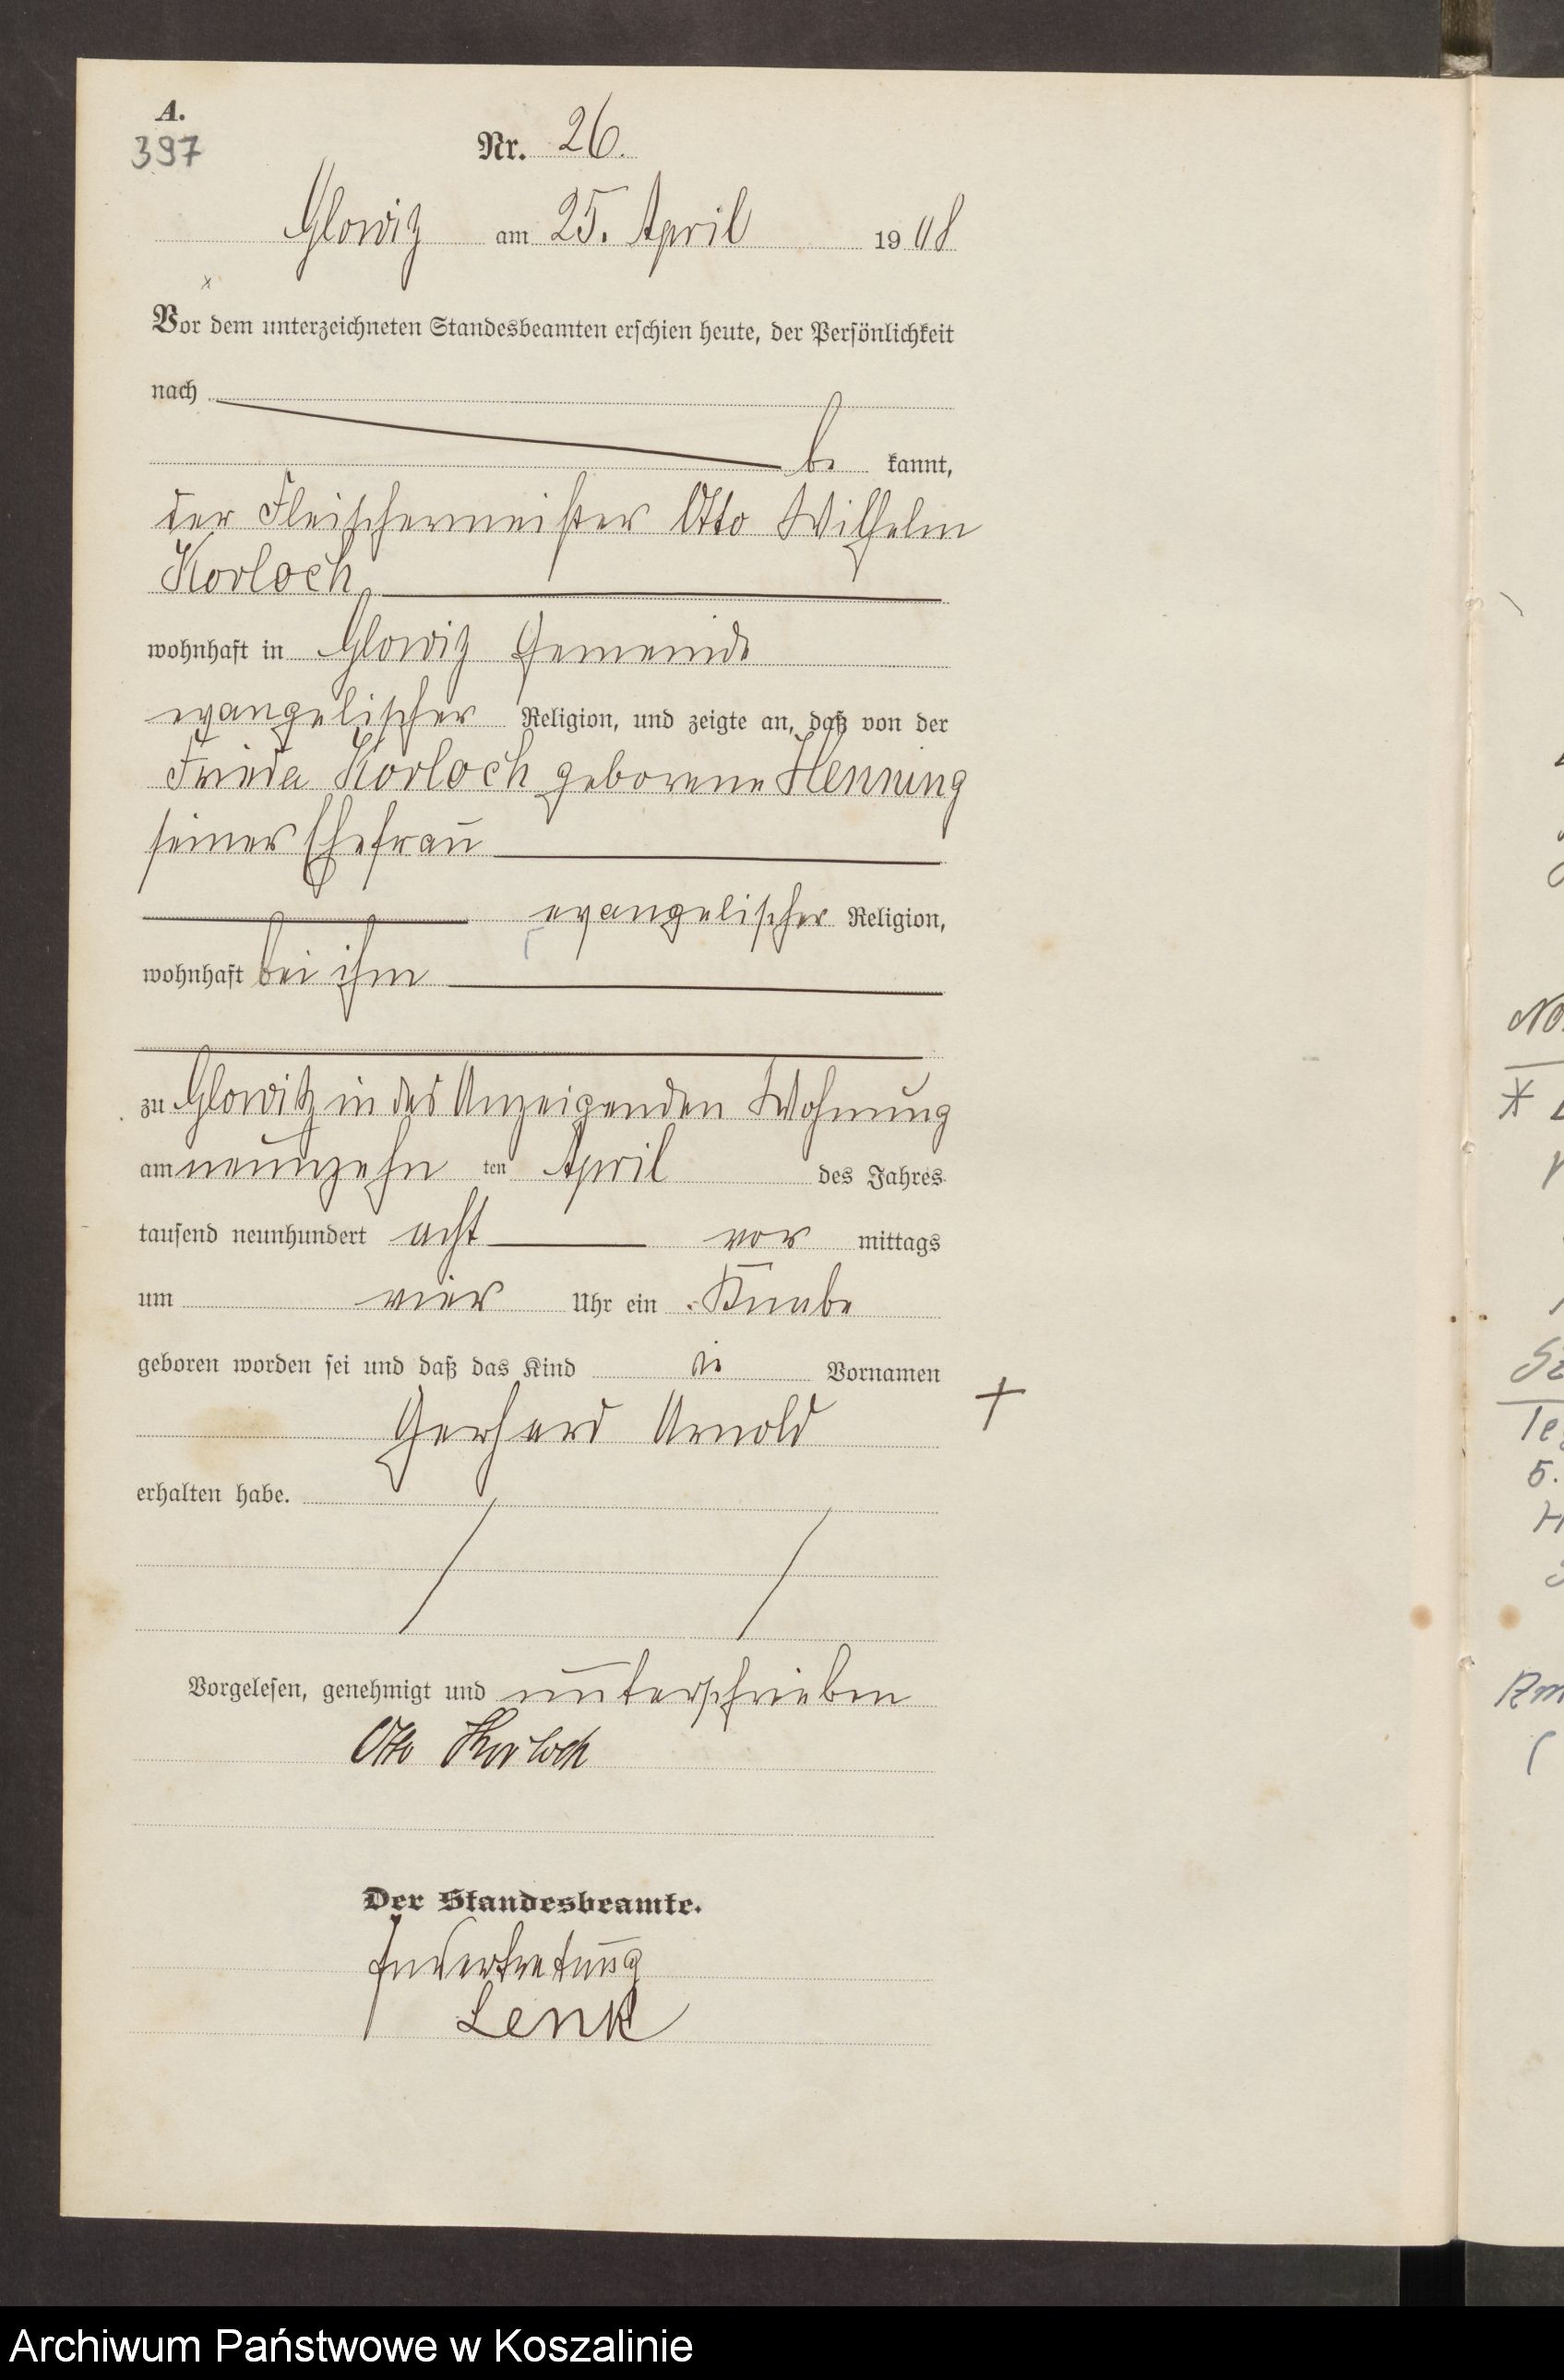 A.
397
Nr. 26.
Glowitz am 25. April 1908
Vor dem unterzeichneten Standesbeamten erschien heute, der Persönlichkeit
nach
be kannt,
der Fleischermeister Otto Wilhelm
Korloch,
wohnhaft in Glowitz Gemeinde
evangelischer Religion, und zeigte an, daß von der
Frieda Korloch geborene Henning
seiner Ehefrau
evangelischer Religion,
wohnhaft bei ihm
zu Glowitz in des Anzeigenden Wohnung
am neunzehn ten April des Jahres
tausend neunhundert acht vor mittags
um vier Uhr ein Knabe
geboren worden sei und daß das Kind die Vornamen
Gerhard Arnold
erhalten habe.
Vorgelesen, genehmigt und unterschrieben
Otto Korloch
Der Standesbeamte.
In Vertretung
Lenk
Archiwum Państwowe w Koszalinie